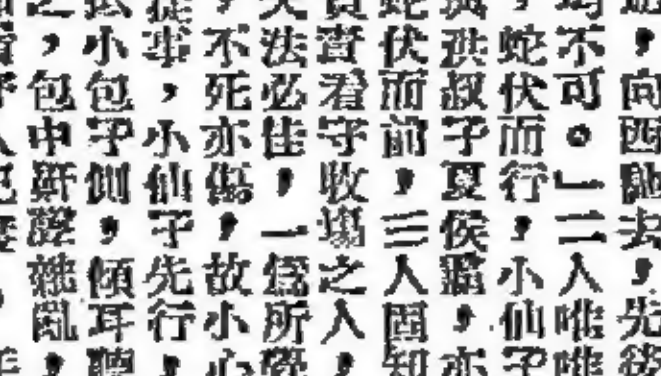 ，向西馳去，先後
不可。」二人唯唯
，蛇伏而行，小仙子
洪叔子夏侯，亦
蛇伏而前，三人固知
責看守收場之人，
法必佳，一為所覺
，不死亦傷，故小心
從事，小仙子先行，
小包子側，傾耳聽
之，包中鼾聲雜亂，